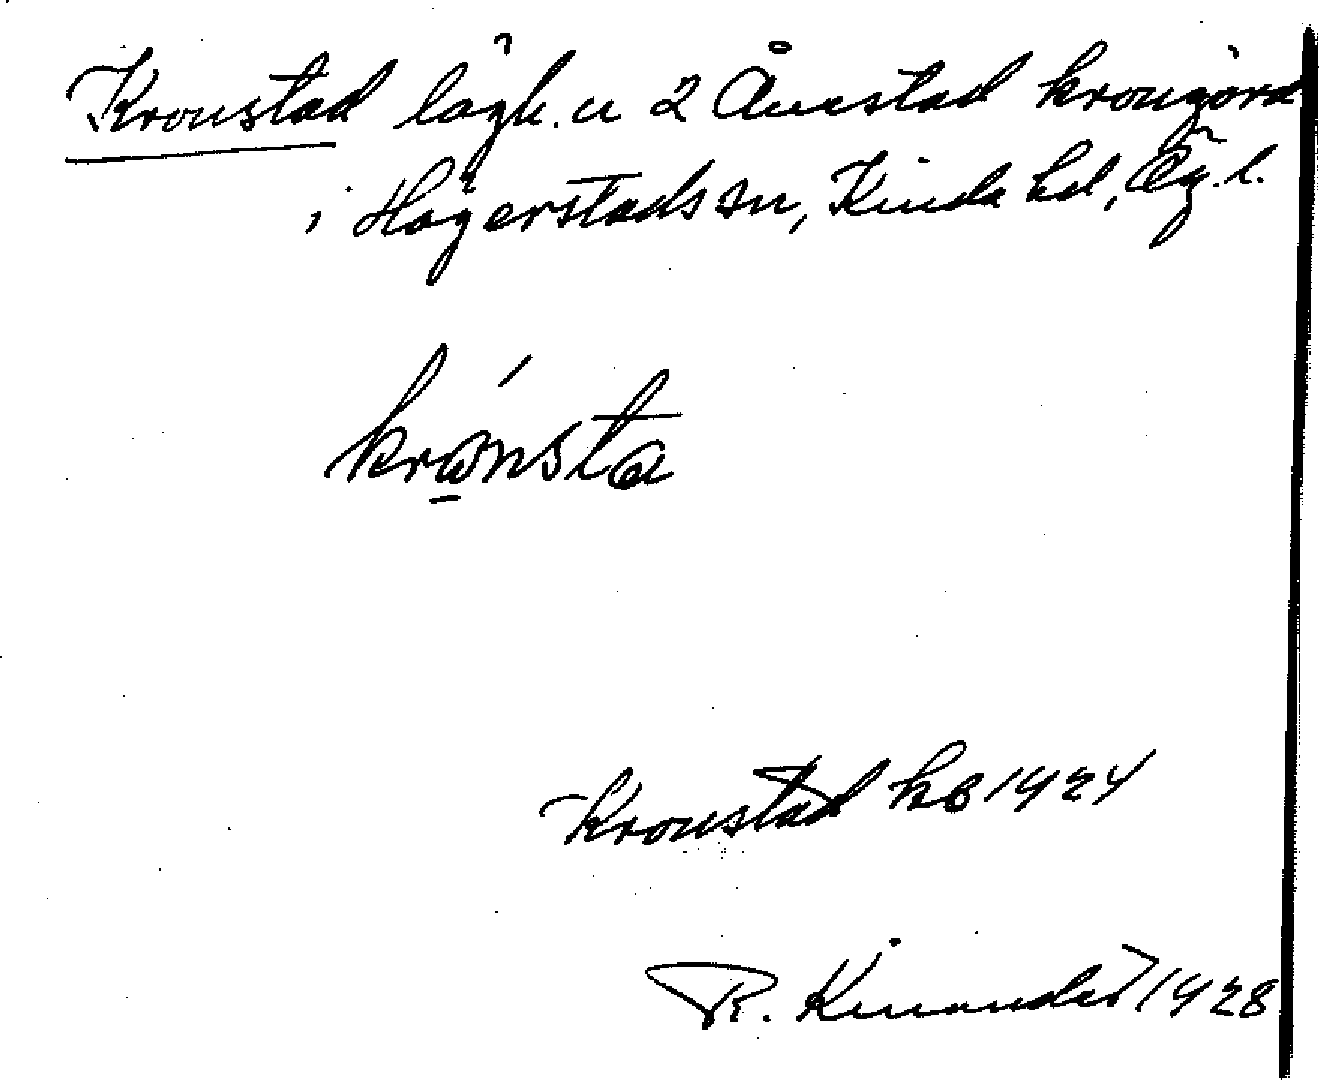 Kronstad lägh. u 2 Ånestad krongård
i Hägerstads sn, Kinda hd, Ög. l.
krónsta
Kronstad kb 1924
R. Kinander 1928